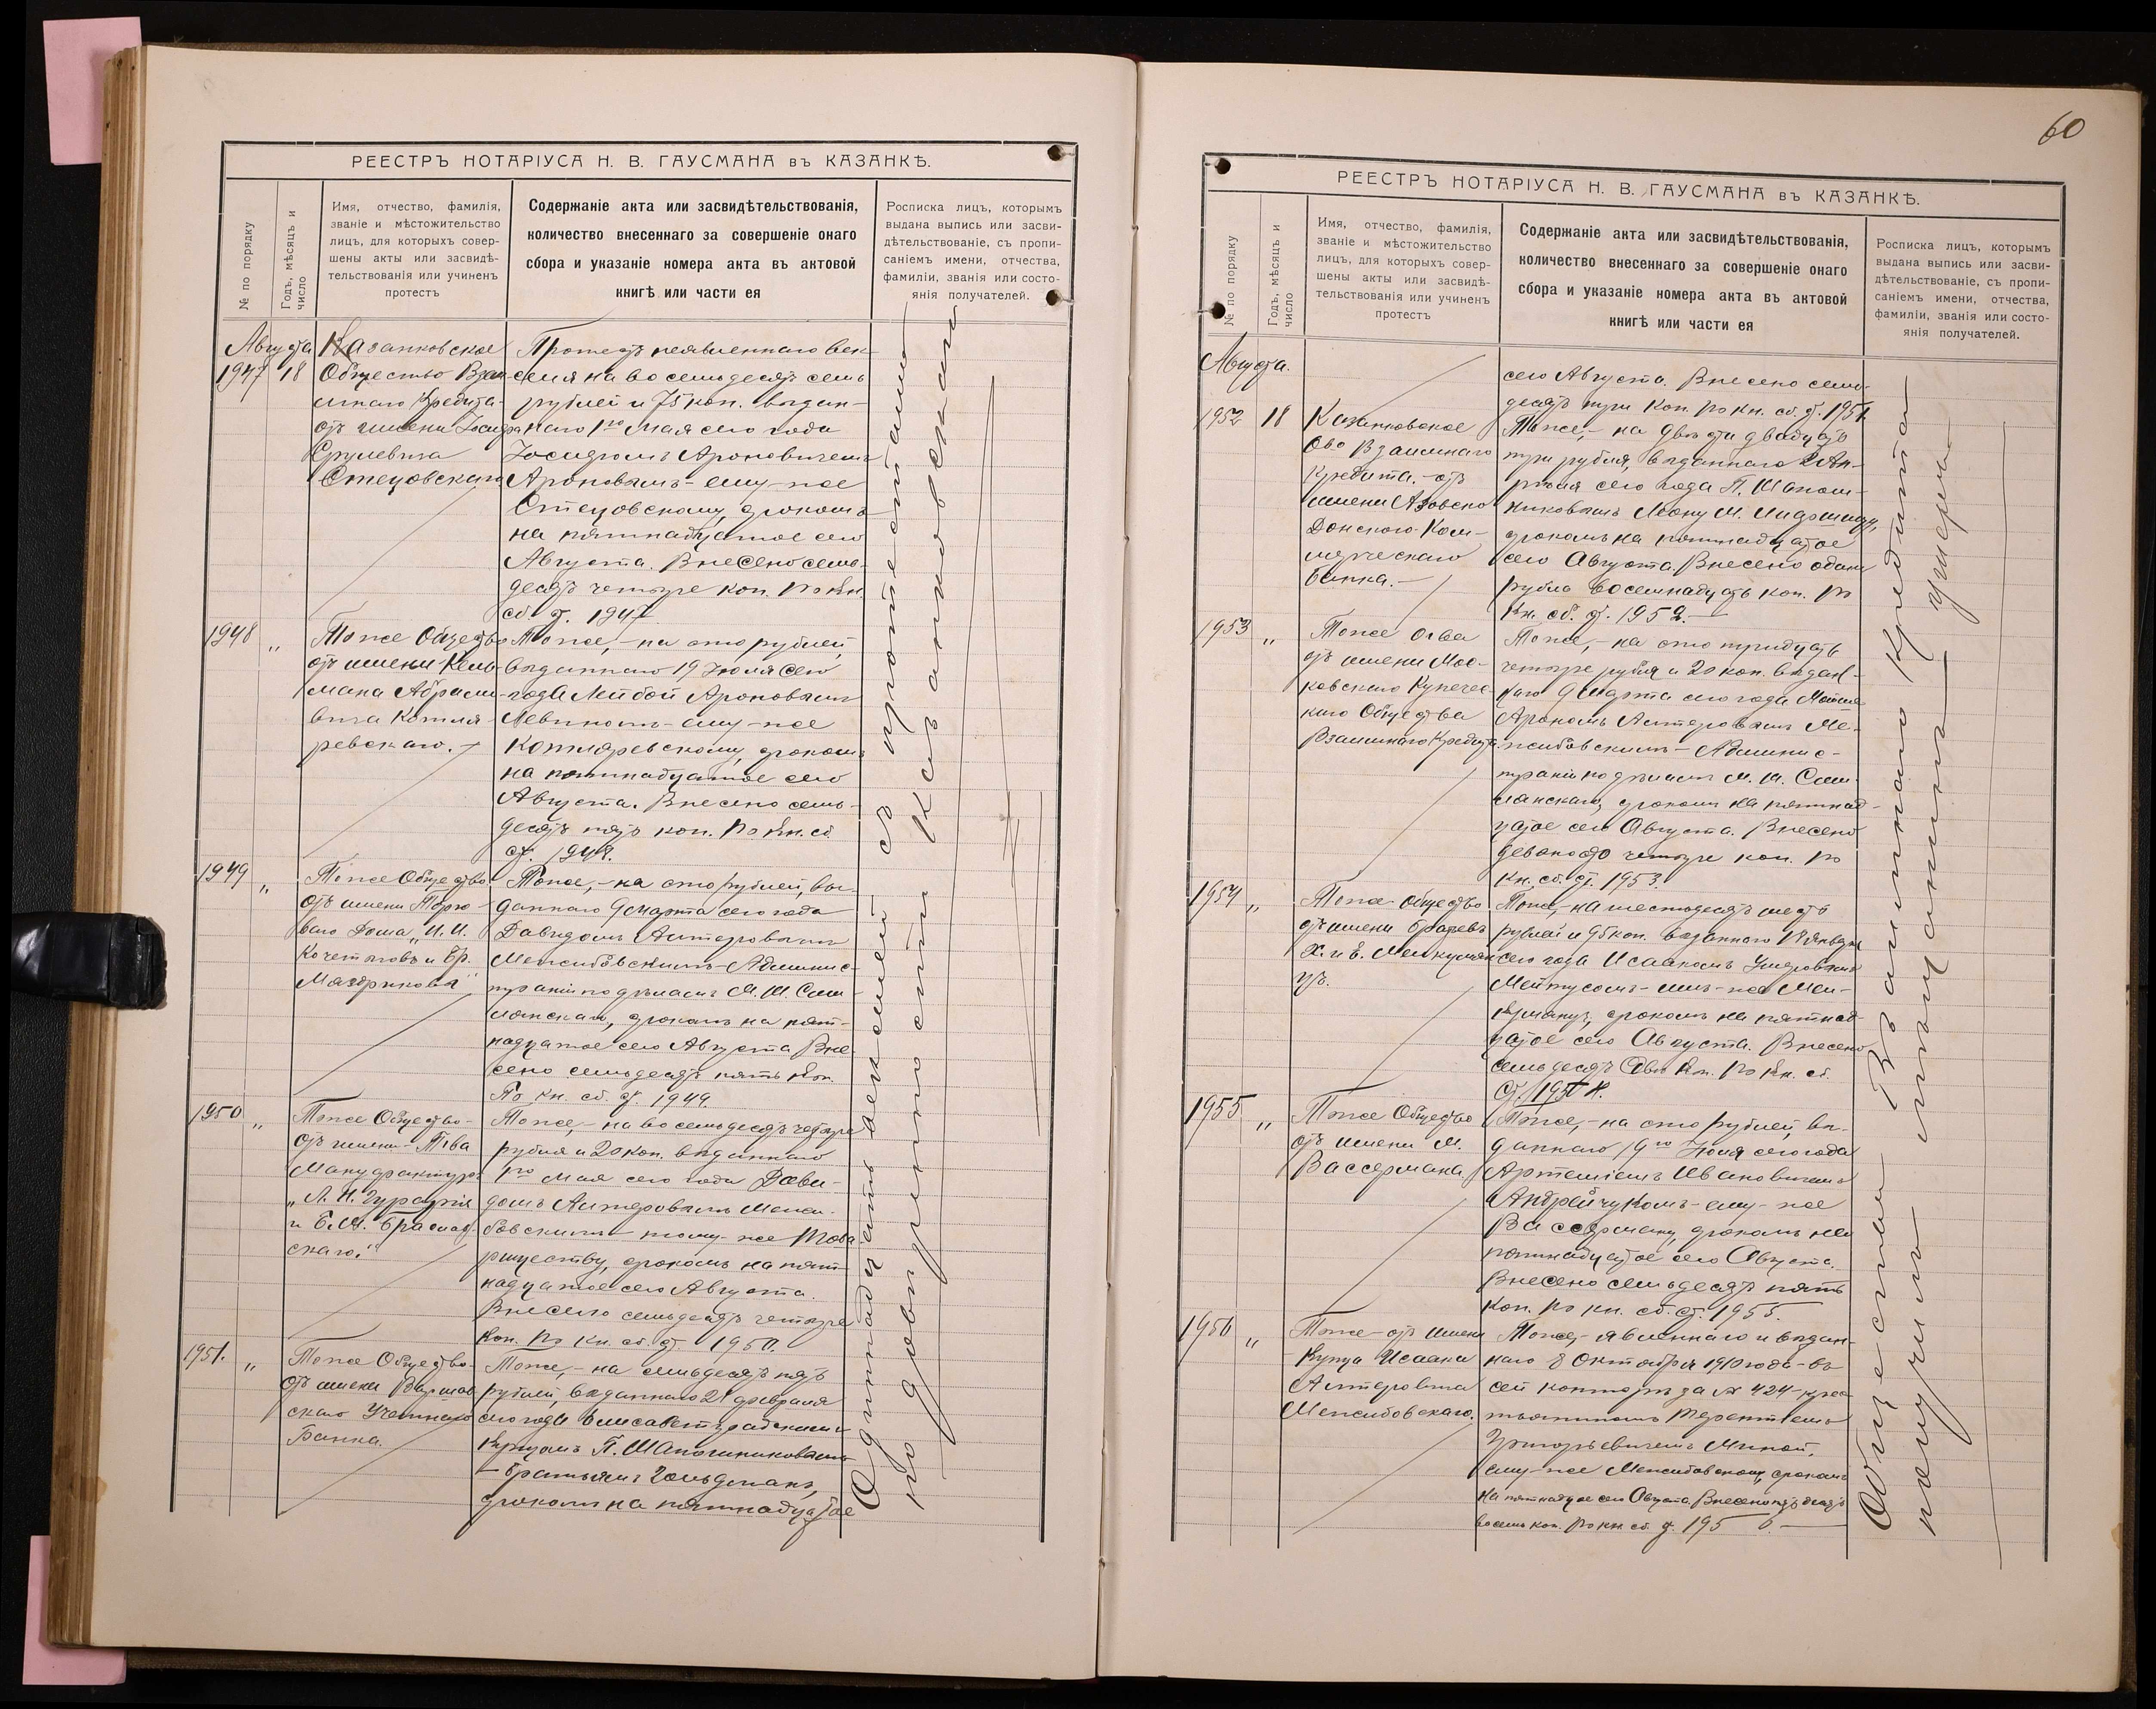 РЕЕСТРЪ НОТАРІУСА Н. В. ГАУСМАНА въ КАЗАНКѢ.
№ по порядку
Годъ, мѣсяцъ и
число
Имя, отчество, фамилія,
званіе и мѣстожительство
лицъ, для которыхъ совер-
шены акты или засвидѣ-
тельствованія или учиненъ
протестъ
Содержаніе акта или засвидѣтельствованія,
количество внесеннаго за совершеніе онаго
сбора и указаніе номера акта въ актовой
книгѣ или части ея
Росписка лицъ, которымъ
выдана выпись или засви-
дѣтельствованіе, съ пропи-
саніемъ имени, отчества,
фамиліи, званія или состо-
янія получателей.
Августа
1947 18
Казанковское
Общество Взаи-
мнаго Кредита-
отъ имени Іосифа
Срулевича
Стецовскаго
Протестъ неявленнаго век-
селя на восемьдесятъ семь
рублей и 75 коп. выдан-
наго 1го Мая сего года
Іосифомъ Ароновичемъ
Ароновымъ-ему-же
Стецовскому, срокомъ
на пятнадцатое сего
Августа. Внесено семь-
десятъ четыре коп. По кн.
сб. ст. 1947
1948 "
Тоже Общество
отъ имени Кель-
мана Абрамо-
вича Котля-
ревскаго.
Тоже,- на сто рублей,
выданнаго 19 Іюля сего
года Лейбой Ароновымъ
Левинымъ-ему-же
Котляревскому, срокомъ
на пятнадцатое сего
Августа. Внесено семь-
десятъ пять коп. По кн. сб.
ст. 1948.
1949 "
Тоже Общество
отъ имени Торго-
ваго Дома „И. И.
Кочетковъ и Бр.
Тоже,- на сто рублей, вы-
даннаго 9 Марта сего года
Давидомъ Антеровымъ
Межибовскимъ-Админис-
траціи по дѣламъ М. Ш. Сми-
лянскаго, срокомъ на пят-
надцатое сего Августа Вне-
сено семьдесятъ пять коп.
По кн. сб. ст. 1949.
1950 "
Тоже Общество-
отъ имени-Т-ва
Мануфактуръ
и Б. М.
скаго."
Тоже,- на восемьдесятъ четыре
рубля и 20 коп. выданнаго
1го Мая сего года Дави-
домъ Антеровымъ Межи-
бовскимъ тому-же Това-
риществу, срокомъ на пят-
надцатое сего Августа.
Внесено семьдесятъ четыре
коп. По кн. сб. ст. 1950.
1951. "
Тоже Общество-
отъ имени Варшав-
скаго Учетнаго
Банка.
Тоже,- на семьдесятъ пять
рублей, выданнаго 21 февраля
сего года Елисаветградскимъ
Купцомъ П. Шапошниковымъ
- братьямъ Гольдманъ,
срокомъ на пятнадцатое
Одиннадцать векселей съ протестами
по довѣренности Казанковскаго
60
РЕЕСТРЪ НОТАРІУСА Н. В. ГАУСМАНА въ КАЗАНКѢ.
№ по порядку
Годъ, мѣсяцъ и
число
Имя, отчество, фамилія,
званіе и мѣстожительство
лицъ, для которыхъ совер-
шены акты или засвидѣ-
тельствованія или учиненъ
протестъ
Содержаніе акта или засвидѣтельствованія,
количество внесеннаго за совершеніе онаго
сбора и указаніе номера акта въ актовой
книгѣ или части ея
Росписка лицъ, которымъ
выдана выпись или засви-
дѣтельствованіе, съ пропи-
саніемъ имени, отчества,
фамиліи, званія или состо-
янія получателей.
Августа.
сего Августа. Внесено семь-
десятъ три коп. По кн. сб. ст. 1951.
1952 18
Казанковское
О-во Взаимнаго
Кредита.-отъ
имени Азовско
Донского Ком-
мерческаго
банка.-
Тоже,- на двѣсти двадцать
три рубля, выданнаго 2 Ап-
рѣля сего года П. Шапош-
никовымъ Леону М.
срокомъ на пятнадцатое
сего Августа. Внесено одинъ
рубль восемнадцать коп. По
кн. сб. ст. 1952.-
1953 "
Тоже О-ва
отъ имени Мос-
ковскаго Купечес-
каго Общества
Взаимнаго Кредита
Тоже,- на сто тридцать
четыре рубля и 20 коп. выдан-
наго 9 Марта сего года
Арономъ Антеровымъ Ме-
жибовскимъ-Админис-
траціи по дѣламъ М. Ш. Сми-
лянскаго, срокомъ на пятнад-
цатое сего Августа. Внесено
девяносто четыре коп. По
кн. сб. ст. 1953.
1954 "
Тоже Общество
отъ имени братьевъ
Х. и Е.
Тоже, на шестьдесятъ шесть
рублей и 95 коп. выданнаго 18 Января
сего года Исаакомъ
срокомъ на пятнад-
цатое сего Августа. Внесено
семьдесятъ двѣ коп. По кн. сб.
ст. 1954.
1955 "
Тоже Общество
отъ имени М.
Вассермана
Тоже,- на сто рублей, вы-
даннаго 19го Іюля сего года
Артеміемъ Ивановичемъ
Андрейчукомъ-ему-же
Вассерману, срокомъ на
пятнадцатое сего Августа.
Внесено семьдесятъ пять
коп. По кн. сб. ст. 1955.
1956 "
Тоже-отъ имени
Купца Исаака
Антеровича
Межибовскаго.
Тоже,- явленнаго и выдан-
наго 8 Октября 1910 года-въ
сей конторѣ за № 424-крес-
тьяниномъ Терентіемъ
Григорьевичемъ Миной,
ему-же Межибовскому, срокомъ
на пятнадцатое сего Августа. Внесено пятьдесятъ
восемь коп. По кн. сб. ст. 1956.-
Общества Взаимнаго Кредита
получилъ